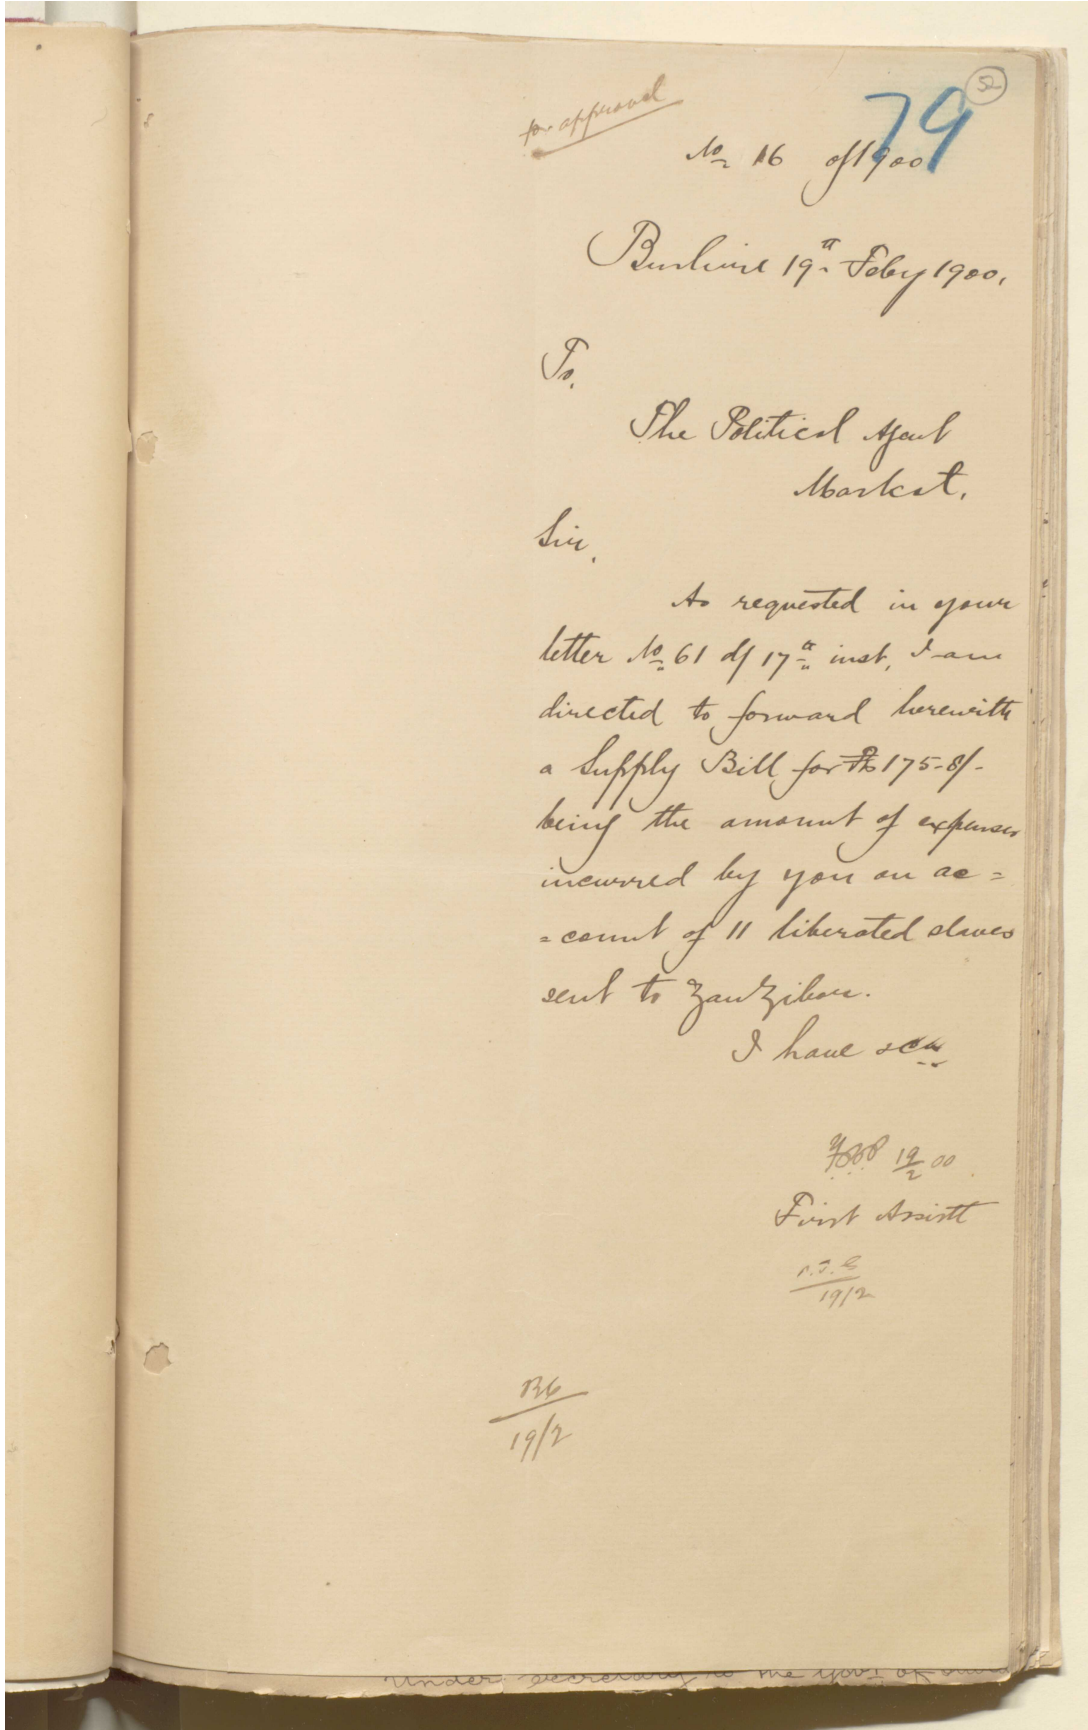 52
79
for approval
No 16 of 1900
Bushire 19th Feby 1900.
To,
The Political Agent
Maskat.
Sir,
As requested in your
letter No 61 of 17th inst, I am
directed to forward herewith
a Supply Bill for Rs 175-8/-
being the amount of expenses
incurred by you on ac=
=count of 11 liberated slaves
sent to Zanzibar.
I have &ca
19/2 00
First Assistt
19/2
19/2
Under Secretary to the Govt of